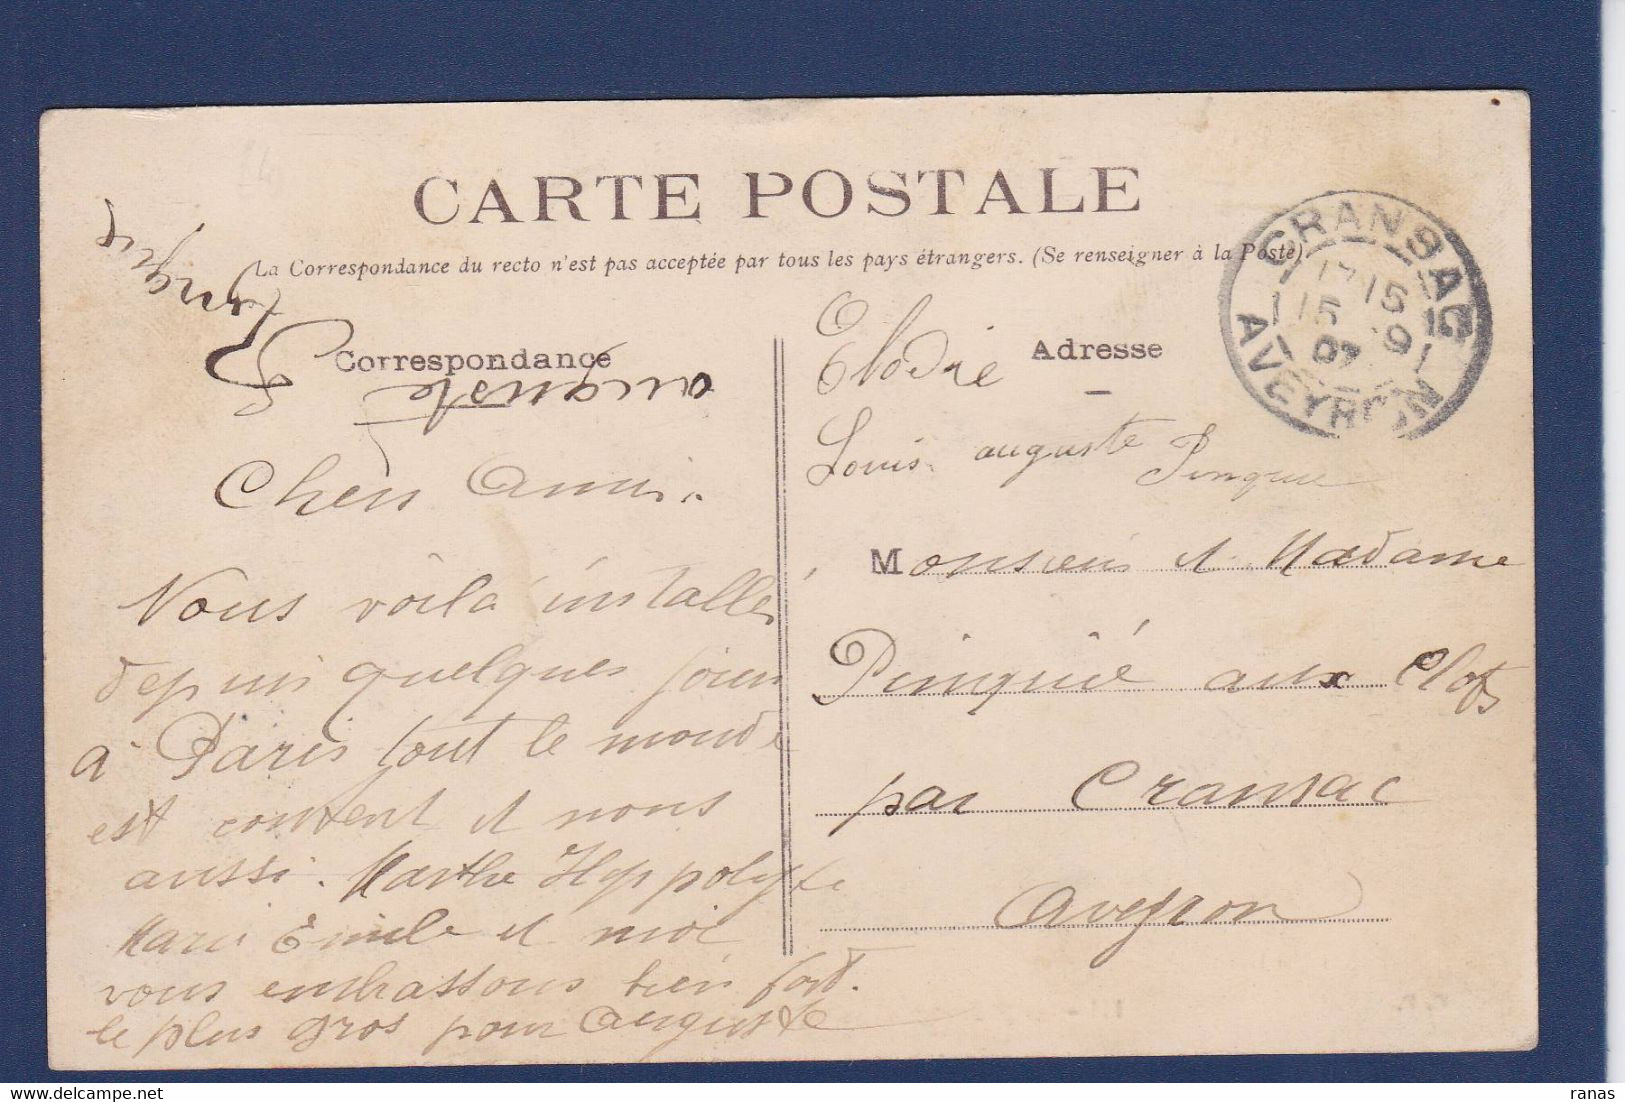 CARTE POSTALE
La Correspondance du recto n'est pas acceptée par tous les pays étrangers. (Se renseigner à la Poste)
CRANSAC
17 15
15 9
07
AVEYRON
Correspondance
auguste
Chers Amis.
Nous voila installés
depuis quelques jours
à Paris tout le monde
est content et nous
aussi. Marthe Hyppolyte
Marie Emile et moi
vous embrassons bien fort.
le plus gros pour Auguste
Adresse
Elodie
Louis auguste
Monsieur et Madame
Pinquié aux Clots
par Cransac
Aveyron
ranas